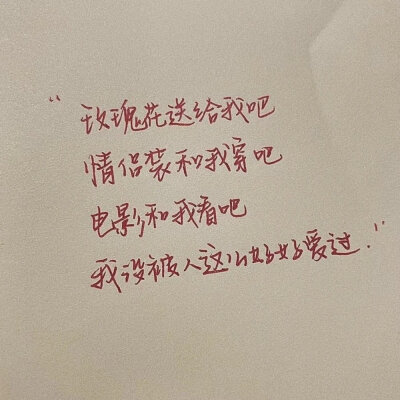 “玫瑰花送给我吧
情侣装和我穿吧
电影和我看吧
我没被人这么好好爱过.”